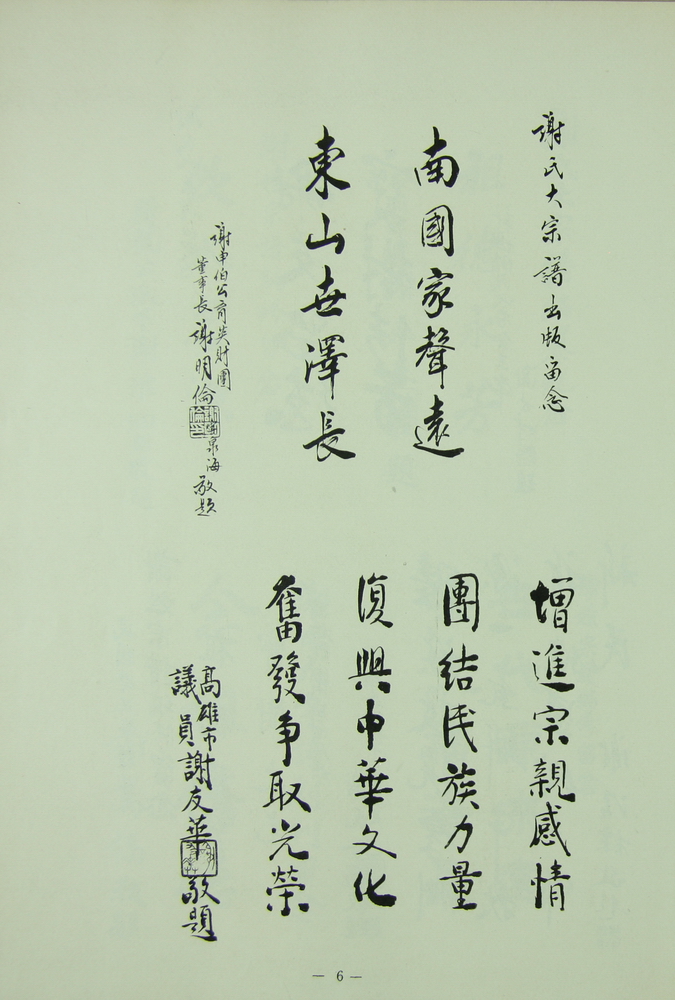 謝氏大宗譜出版留念
南國家聲遠
東山世澤長
謝申伯公育英財團
董事長謝明倫
泉海敬題
增進宗親感情
團結民族力量
復興中華文化
奮發爭取光榮
高雄市
議員謝友華敬題
— 6 —